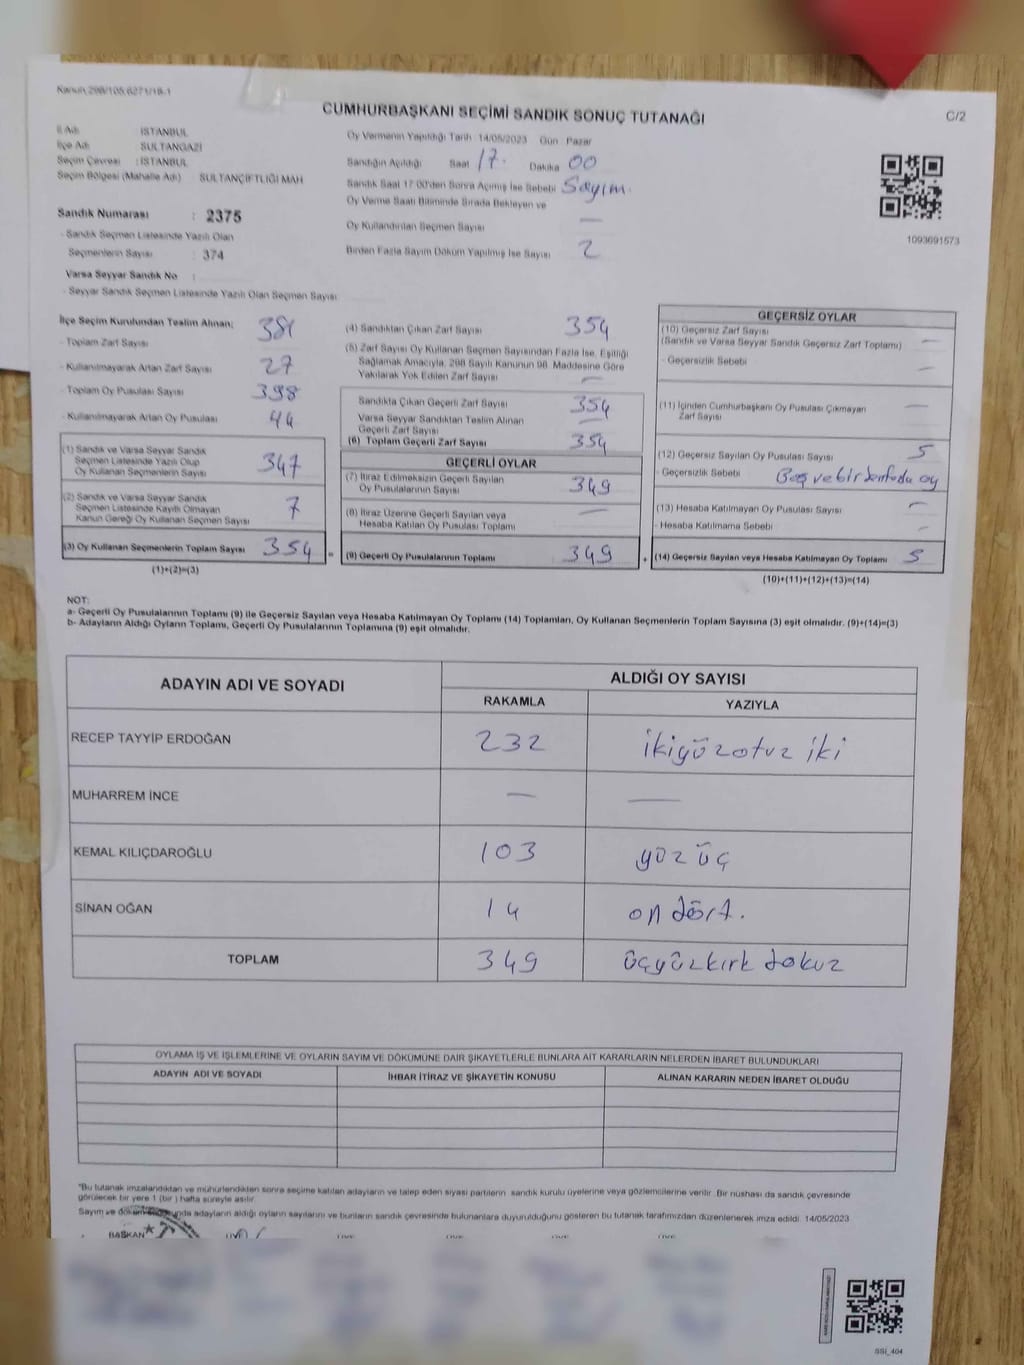 Kanun 298/105,6271/18-1
CUMHURBAŞKANI SEÇİMİ SANDIK SONUÇ TUTANAĞI
C/2
İl Adı : İSTANBUL
İlçe Adı : SULTANGAZİ
Seçim Çevresi : İSTANBUL
Seçim Bölgesi (Mahalle Adı) SULTANÇİFTLİĞİ MAH
Sandık Numarası : 2375
- Sandık Seçmen Listesinde Yazılı Olan
Seçmenlerin Sayısı : 374
Varsa Seyyar Sandık No :
- Seyyar Sandık Seçmen Listesinde Yazılı Olan Seçmen Sayısı
Oy Vermenin Yapıldığı Tarih 14/05/2023 Gün Pazar
Sandığın Açıldığı Saat 17. Dakika 00
Sandık Saat 17.00'den Sonra Açımış İse Sebebi Sayım.
Oy Verme Saati Bitiminde Sırada Bekleyen ve
Oy Kullandırılan Seçmen Sayısı —
Birden Fazla Sayım Döküm Yapılmış İse Sayısı 2
1093691573
İlçe Seçim Kurulundan Teslim Alınan;
- Toplam Zarf Sayısı 381
- Kullanılmayarak Artan Zarf Sayısı 27
- Toplam Oy Pusulası Sayısı 398
- Kullanılmayarak Artan Oy Pusulası 44
(1) Sandık ve Varsa Seyyar Sandık
Seçmen Listesinde Yazılı Olup
Oy Kullanan Seçmenlerin Sayısı 347
(2) Sandık ve Varsa Seyyar Sandık
Seçmen Listesinde Kayıtlı Olmayan
Kanun Gereği Oy Kullanan Seçmen Sayısı 7
(3) Oy Kullanan Seçmenlerin Toplam Sayısı 354
(1)+(2)=(3)
=
(4) Sandıktan Çıkan Zarf Sayısı 354
(5) Zarf Sayısı Oy Kullanan Seçmen Sayısından Fazla İse, Eşitliği
Sağlamak Amacıyla, 298 Sayılı Kanunun 98. Maddesine Göre
Yakılarak Yok Edilen Zarf Sayısı —
Sandıkta Çıkan Geçerli Zarf Sayısı 354
Varsa Seyyar Sandıktan Teslim Alınan
Geçerli Zarf Sayısı —
(6) Toplam Geçerli Zarf Sayısı 354
GEÇERLİ OYLAR
(7) İtiraz Edilmeksizin Geçerli Sayılan
Oy Pusulalarının Sayısı 349
(8) İtiraz Üzerine Geçerli Sayılan veya
Hesaba Katılan Oy Pusulası Toplamı —
(9) Geçerli Oy Pusulalarının Toplamı 349
+
GEÇERSİZ OYLAR
(10) Geçersiz Zarf Sayısı —
(Sandık ve Varsa Seyyar Sandık Geçersiz Zarf Toplamı)
- Geçersizlik Sebebi —
(11) İçinden Cumhurbaşkanı Oy Pusulası Çıkmayan
Zarf Sayısı —
(12) Geçersiz Sayılan Oy Pusulası Sayısı 5
- Geçersizlik Sebebi Boş ve bir
(13) Hesaba Katılmayan Oy Pusulası Sayısı —
- Hesaba Katılmama Sebebi —
(14) Geçersiz Sayılan veya Hesaba Katılmayan Oy Toplamı 5
(10)+(11)+(12)+(13)=(14)
NOT:
a- Geçerli Oy Pusulalarının Toplamı (9) ile Geçersiz Sayılan veya Hesaba Katılmayan Oy Toplamı (14) Toplamları, Oy Kullanan Seçmenlerin Toplam Sayısına (3) eşit olmalıdır. (9)+(14)=(3)
b- Adayların Aldığı Oyların Toplamı, Geçerli Oy Pusulalarının Toplamına (9) eşit olmalıdır.
ADAYIN ADI VE SOYADI
ALDIĞI OY SAYISI
RAKAMLA YAZIYLA
RECEP TAYYİP ERDOĞAN 232 ikiyüzotuz iki
MUHARREM İNCE — —
KEMAL KILIÇDAROĞLU 103 yüz üç
SİNAN OĞAN 14 on dört.
TOPLAM 349 üçyüzkırk dokuz
OYLAMA İŞ VE İŞLEMLERİNE VE OYLARIN SAYIM VE DÖKÜMÜNE DAİR ŞİKAYETLERLE BUNLARA AİT KARARLARIN NELERDEN İBARET BULUNDUKLARI
ADAYIN ADI VE SOYADI İHBAR İTİRAZ VE ŞİKAYETİN KONUSU ALINAN KARARIN NEDEN İBARET OLDUĞU
"Bu tutanak imzalandıktan ve mühürlendikten sonra seçime katılan adayların ve talep eden siyasi partilerin sandık kurulu üyelerine veya gözlemcilerine verilir. Bir nüshası da sandık çevresinde
görülecek bir yere 1 (bir) hafta süreyle asılır.
Sayım ve döküm adayların aldığı oyların sayılarını ve bunların sandık çevresinde bulunanlara duyurulduğunu gösteren bu tutanak tarafımızdan düzenlenerek imza edildi. 14/05/2023
BAŞKAN
SSİ_404